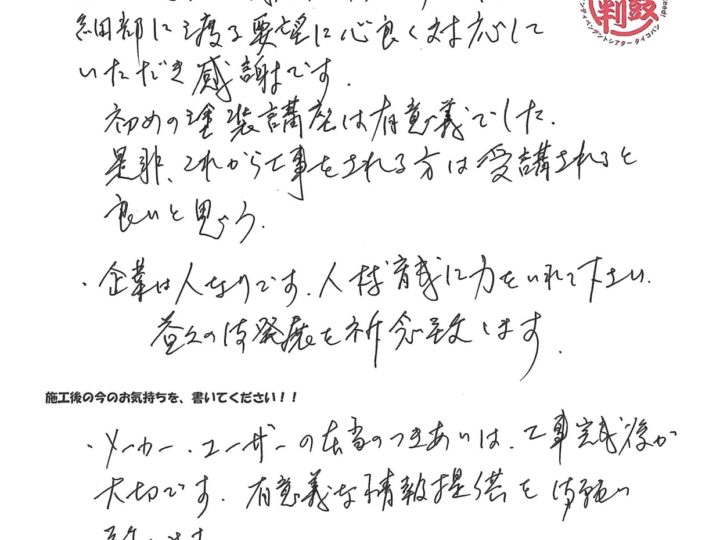 細部に渡る要望に心良く対応して
いただき感謝です.
初めの塗装講座は有意義でした.
是非、これから工事をされる方は受講されると
良いと思う.
・企業は人なりです. 人材育成に力をいれて下さい.
益々の御発展を祈念致します.
施工後の今のお気持ちを、書いてください！！
・メーカー・ユーザーの本当のつきあいは、工事完成後が
大切です. 有意義な情報提供を御願い